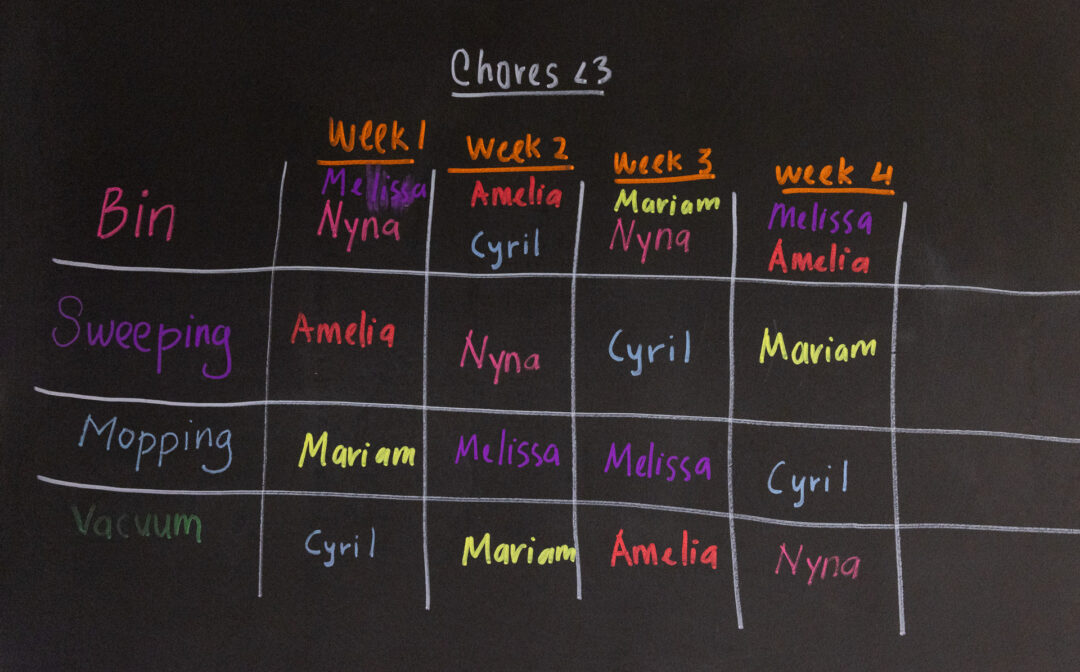 Chores <3
Week 1 Week 2 Week 3 Week 4
Bin Melissa Amelia Mariam Melissa
Nyna Cyril Nyna Amelia
Sweeping Amelia Nyna Cyril Mariam
Mopping Mariam Melissa Melissa Cyril
Vacuum Cyril Mariam Amelia Nyna